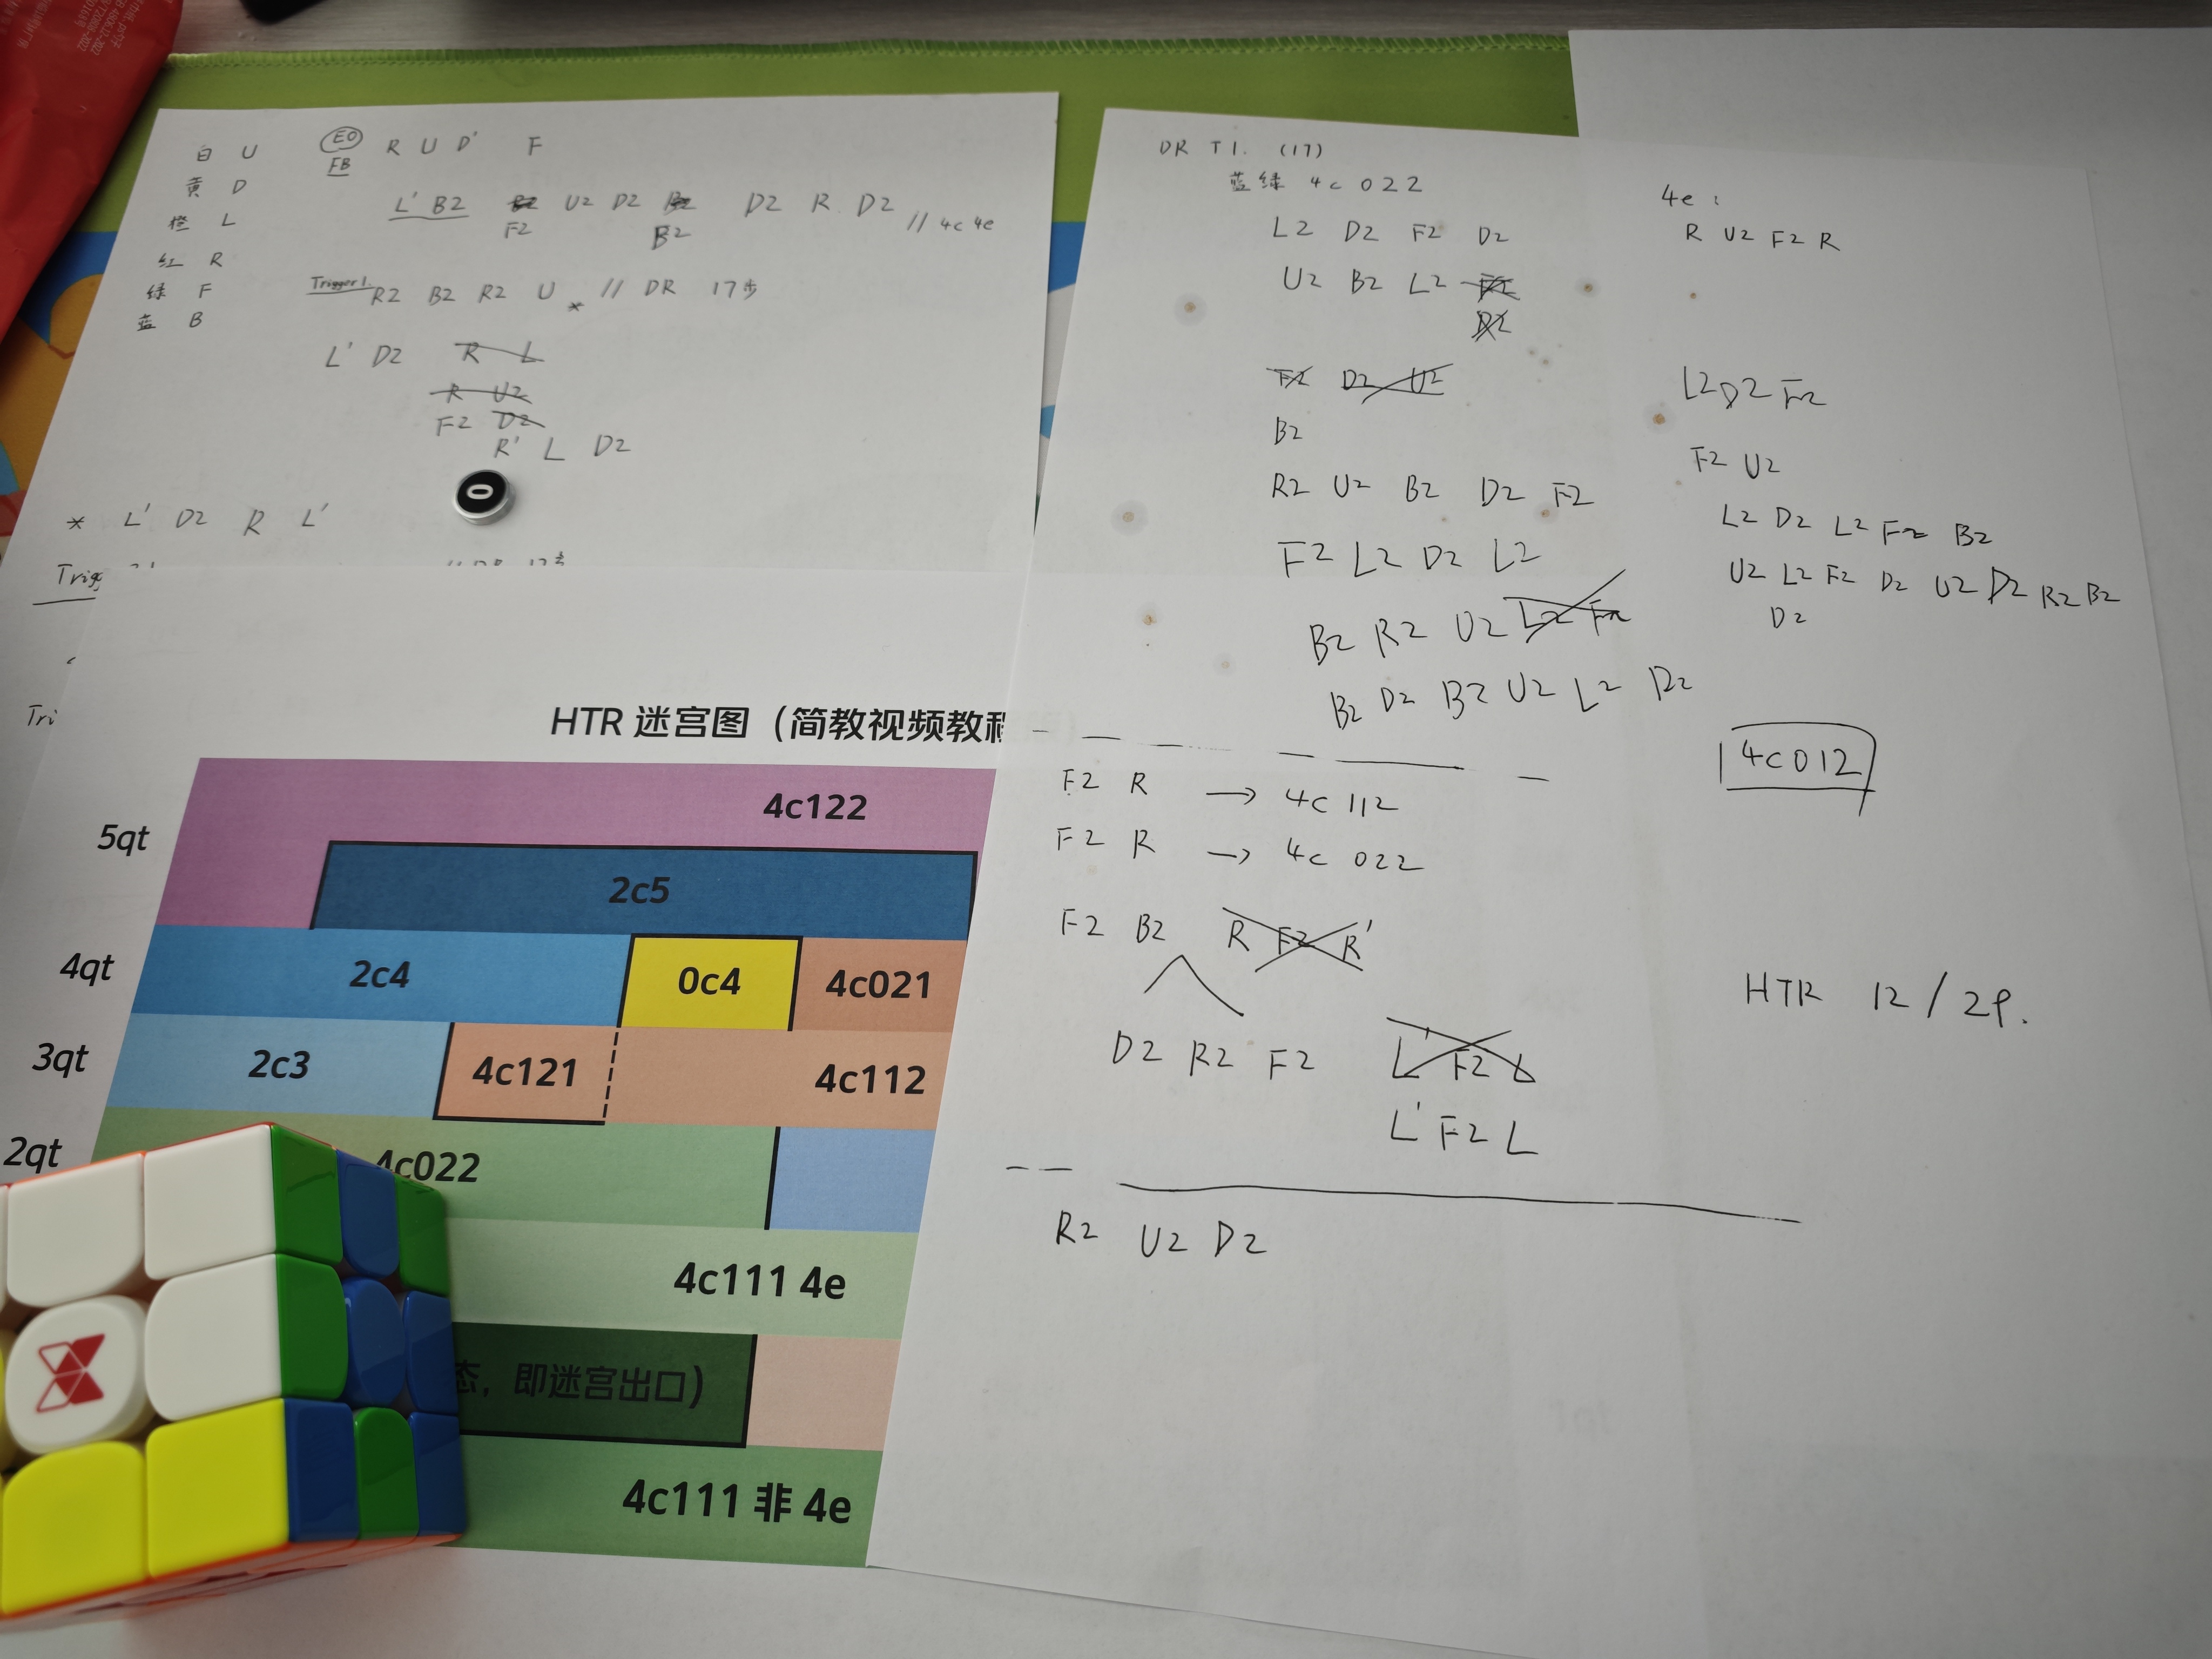 白 U
黄 D
橙 L
红 R
绿 F
蓝 B
EO R U D' F
FB
L' B2 U2 D2 D2 R D2 // 4c 4e
F2 B2
Trigger1. R2 B2 R2 U * // DR 17步
L' D2 R L
R U2
F2 D2
R' L D2
* L' D2 R L'
Trigg
Tri
HTR 迷宫图（简教视频教程
4c122
5qt
2c5
4qt
2c4
0c4
4c021
3qt
2c3
4c121
4c112
2qt
4c022
4c111 4e
态，即迷宫出口）
4c111 非 4e
DR T1. (17)
蓝绿 4c 022
L2 D2 F2 D2
U2 B2 L2
F2 D2 U2
B2
R2 U2 B2 D2 F2
F2 L2 D2 L2
B2 R2 U2 L2 F2
B2 D2 B2 U2 L2
4e:
R U2 F2 R
L2 D2 F2
F2 U2
L2 D2 L2 F2 B2
U2 L2 F2 D2 U2 D2 R2 B2
D2
4c012
F2 R → 4c 112
F2 R → 4c 022
F2 B2 R F2 R'
D2 R2 F2 L F2 L
L' F2 L
HTR 12 / 29.
R2 U2 D2